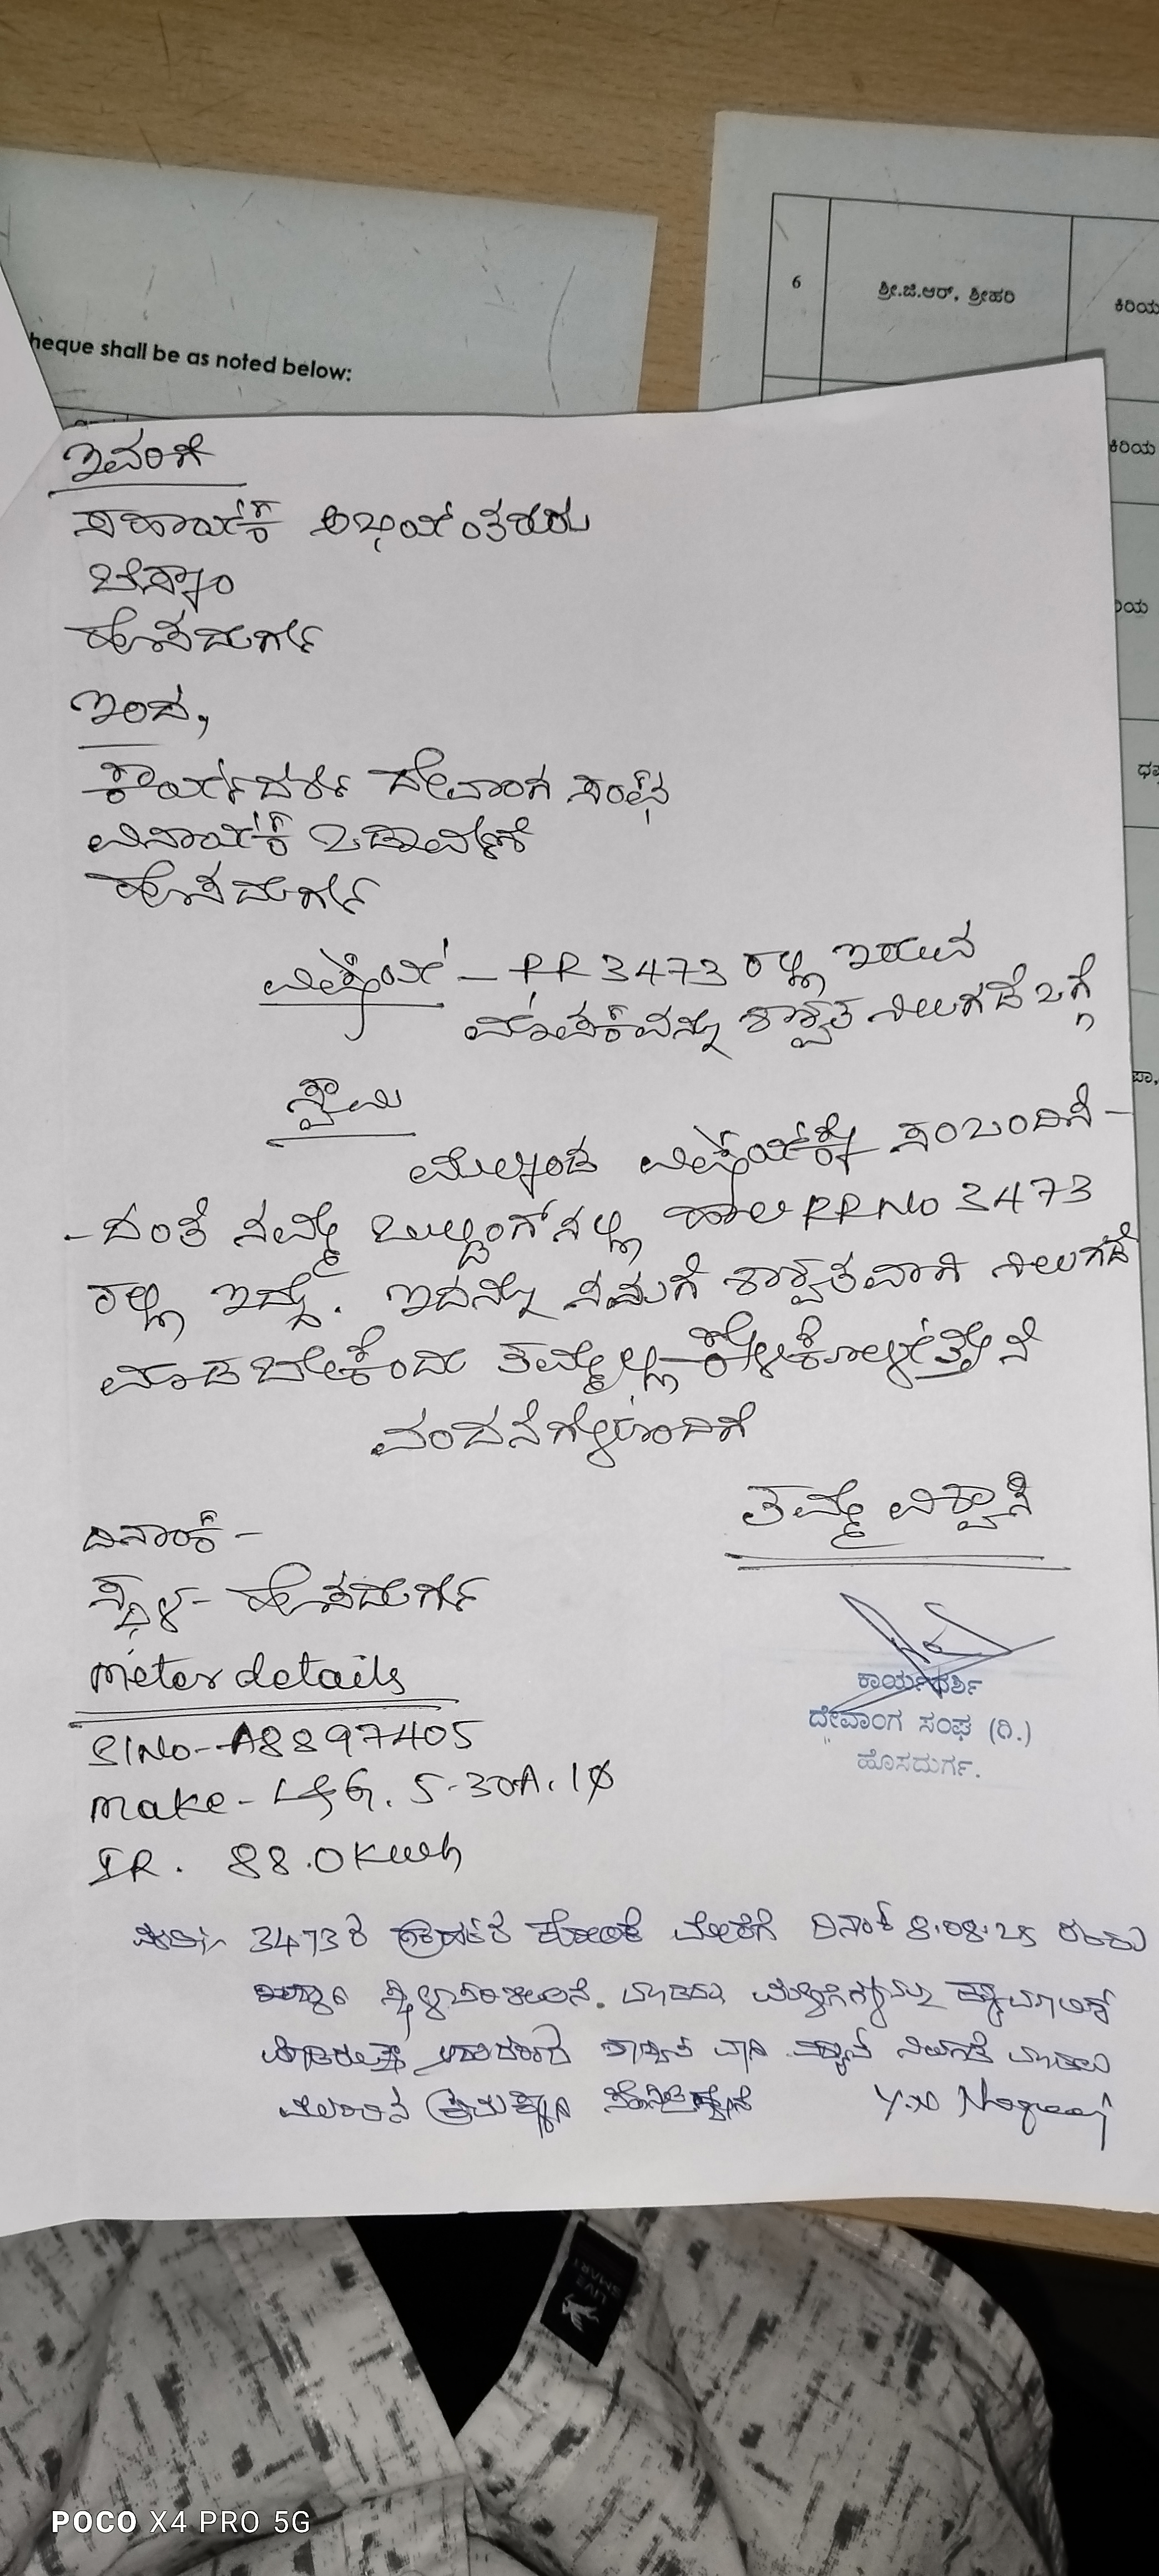 heque shall be as noted below:
6
ಶ್ರೀ.ಜಿ.ಆರ್. ಶ್ರೀಹರಿ
ಕಿರಿಯ
ಕಿರಿಯ
ಇವರಿಗೆ
ಸಹಾಯಕ ಅಭಿಯಂತರರು
ಬೆಸ್ಕಾಂ
ಹೊಸದುರ್ಗ
ಇಂದ,
ಕಾರ್ಯದರ್ಶಿ ದೇವಾಂಗ ಸಂಘ
ವಿನಾಯಕ ಬಡಾವಣೆ
ಹೊಸದುರ್ಗ
ವಿಷಯ – RR 3473 ರಲ್ಲಿ ಇರುವ
ಮಾಪಕವನ್ನು ಶಾಶ್ವತ ನಿಲುಗಡೆ ಬಗ್ಗೆ
ಸ್ವಾಮಿ
ಮೇಲ್ಕಂಡ ವಿಷಯಕ್ಕೆ ಸಂಬಂದಿಸಿ –
- ದಂತೆ ನಮ್ಮ ಬಿಲ್ಡಿಂಗ್‌ನಲ್ಲಿ ಹಾಲಿ RR No 3473
ರಲ್ಲಿ ಇದ್ದು. ಇದನ್ನು ನಮಗೆ ಶಾಶ್ವತವಾಗಿ ನಿಲುಗಡೆ
ಮಾಡಬೇಕೆಂದು ತಮ್ಮಲ್ಲಿ ಕೇಳಿಕೊಳ್ಳುತ್ತೇನೆ
ವಂದನೆಗಳೊಂದಿಗೆ
ತಮ್ಮ ವಿಶ್ವಾಸಿ
ದಿನಾಂಕ –
ಸ್ಥಳ – ಹೊಸದುರ್ಗ
Meter details
Sl No - A8897405
Make - L&G. 5-30A. 1Φ
IR. 88.0 Kwh
ಕಾರ್ಯದರ್ಶಿ
ದೇವಾಂಗ ಸಂಘ (ರಿ.)
ಹೊಸದುರ್ಗ.
3473 ರ ಮೇರೆಗೆ ದಿನಾಂಕ 8.08.25 ರಂದು
ಸ್ಥಳ ಪರಿಶೀಲನೆ
ಶಾಶ್ವತ
Y.N Nagaraj
POCO X4 PRO 5G